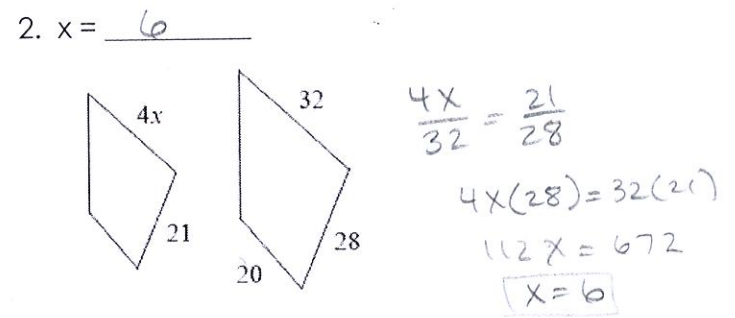 2. x = 6
4x
32
21
28
20
4x/32 = 21/28
4x(28) = 32(21)
112x = 672
x = 6